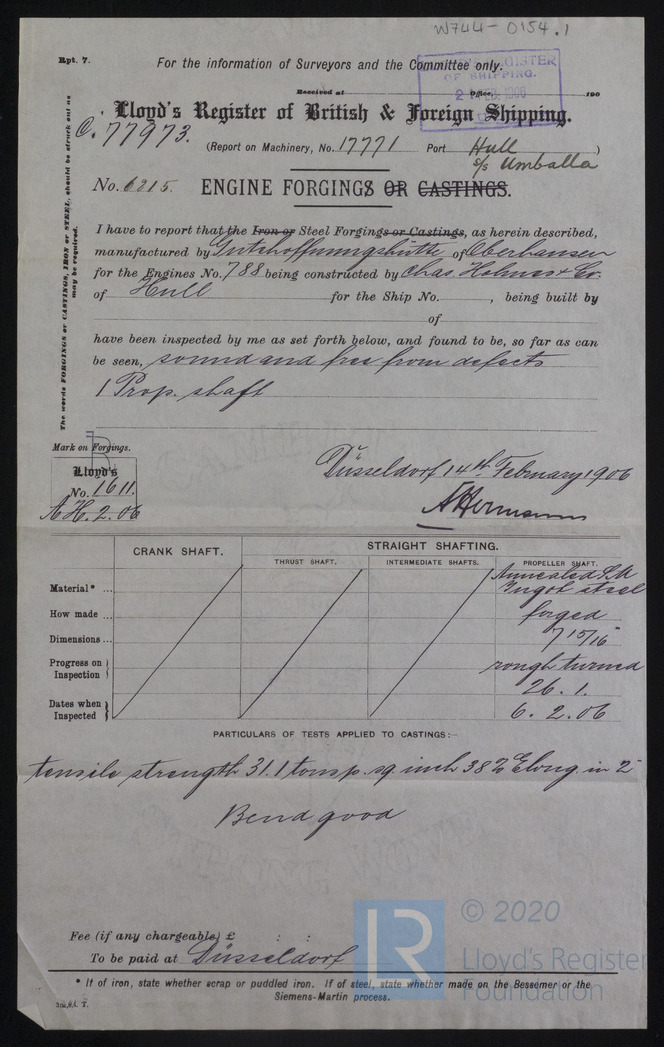 W744-0154.1
Rpt. 7.
For the information of Surveyors and the Committee only.
REGISTER
OF SHIPPING.
Received at Office, 190
Lloyd's Register of British & Foreign Shipping.
C. 77973.
(Report on Machinery, No. 17771 Port Hull)
s/s Umballa
No. 6215. ENGINE FORGINGS OR CASTINGS.
The words FORGINGS or CASTINGS, IRON or STEEL, should be struck out as may be required.
I have to report that the Iron or Steel Forgings or Castings, as herein described,
manufactured by Gutehoffnungshütte of Oberhausen
for the Engines No. 788 being constructed by Chas. Holmes & Co.
of Hull for the Ship No. , being built by
of
have been inspected by me as set forth below, and found to be, so far as can
be seen, sound and free from defects
1 Prop. shaft
Mark on Forgings.
Lloyd's
No. 1611.
AH. 2. 06
Düsseldorf 14th February 1906
A Hermann
CRANK SHAFT. STRAIGHT SHAFTING.
THRUST SHAFT. INTERMEDIATE SHAFTS. PROPELLER SHAFT.
Material* ... Annealed S.M
Ingot steel
How made ... forged
Dimensions ... 7 15/16"
Progress on Inspection rough turned
26. 1.
Dates when Inspected 6. 2. 06
PARTICULARS OF TESTS APPLIED TO CASTINGS:—
tensile strength 31.1 tons p. sq. inch 38% Elong. in 2"
Bend good
Fee (if any chargeable) £ : :
To be paid at Düsseldorf
* If of iron, state whether scrap or puddled iron. If of steel, state whether made on the Bessemer or the
Siemens-Martin process.
LR
© 2020
Lloyd's Register
Foundation